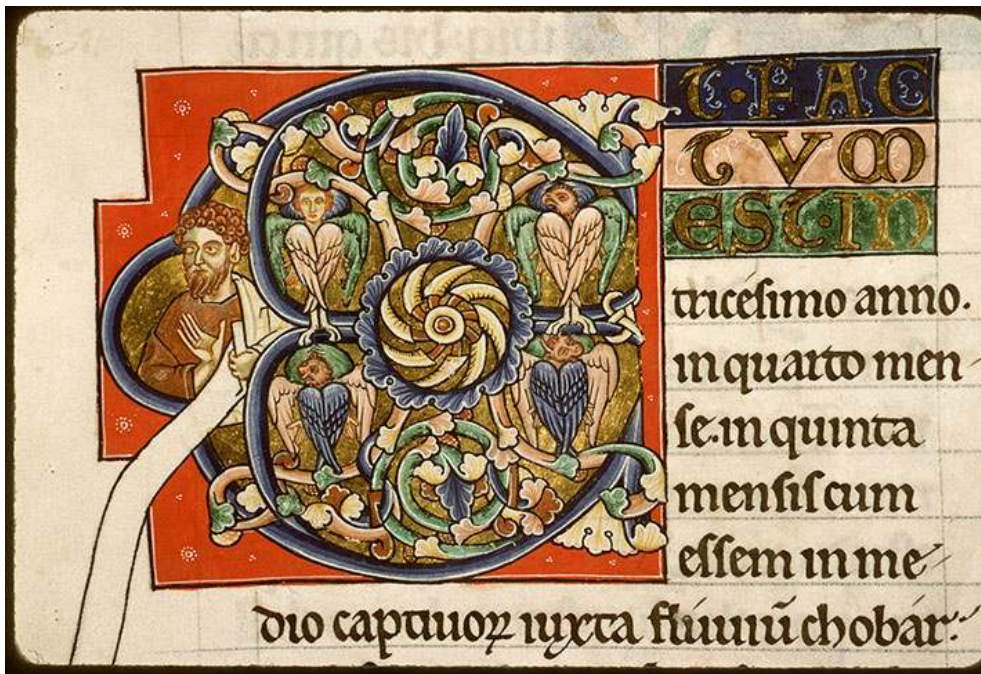 ET·FAC
TVM
EST·IN
tricesimo anno.
in quarto men
se. in quinta
mensis cum
essem in me
dio captiuoꝝ iuxta fluuiū chobar.